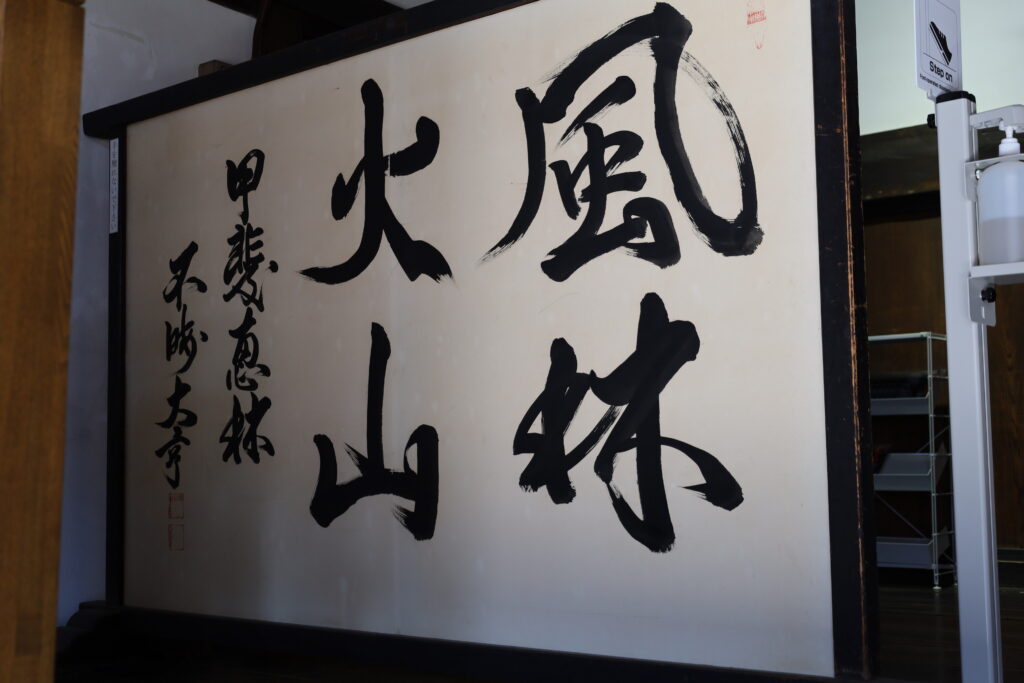 風林
火山
甲斐恵林
不時大亨
Step on